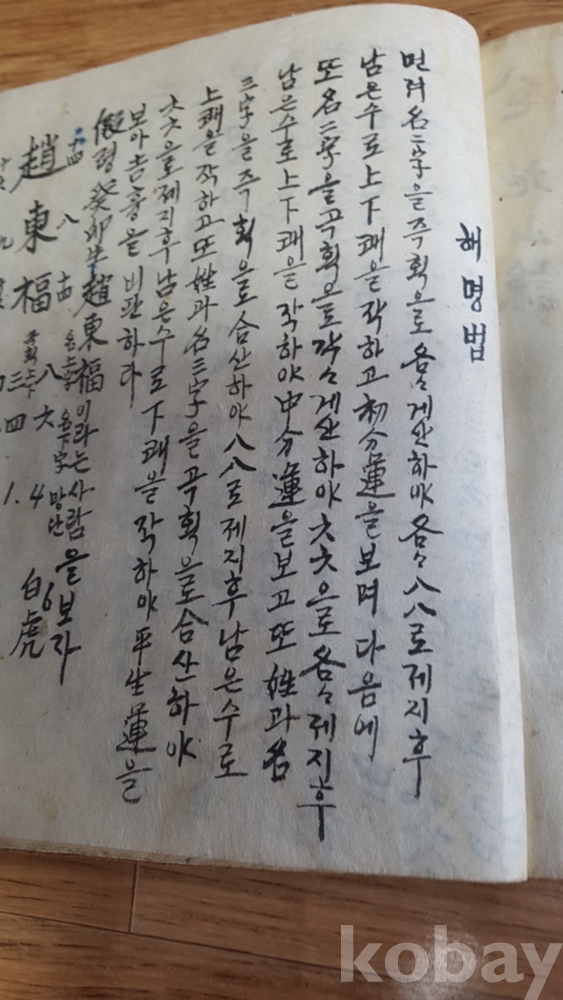 해명법
먼저 名二字을 즉획으로 各々 게산하야 各々 八八로 제지후
남은수로 上下 괘을 작하고 初分 運을 보며 다음에
또 名二字을 곡획으로 각々 게산하야 六六으로 各々 제지후
남은수로 上下 괘을 작하야 中分 運을 보고 또 姓과 名
三字을 즉획으로 合산하야 八八로 제지후 남은수로
上괘을 작하고 또 姓과 名 三字을 곡획을로 合산하야
六六을로 제지후 남은수로 下괘을 작하야 平生 運을
보아 吉흉을 비판하라
假령 癸卯生 趙東福이라는 사람을 보라
趙 東 福
十四 八
八 六 4 6
三 四 1.
白虎
kobay